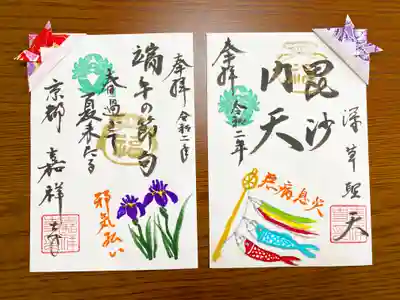 深草聖天
毘沙
门天
奉拝
令和二年
無病息災
奉拝
令和二年
端午の節句
春過ぎて
夏来たる
京都 嘉祥寺
邪気払い